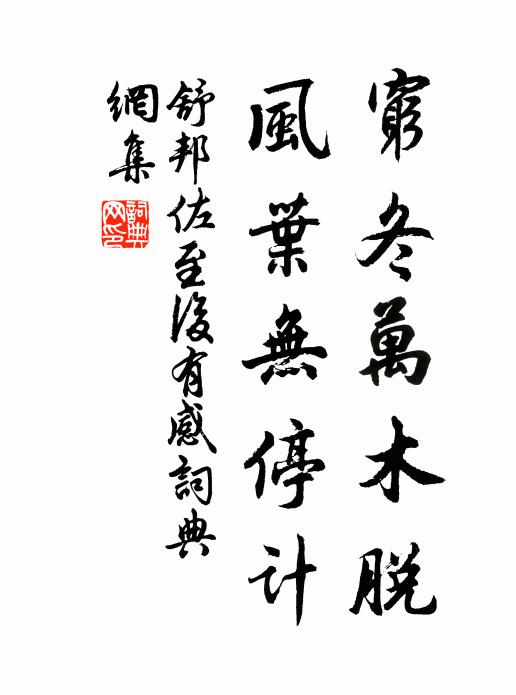 窮冬萬木脫
風葉無停計
舒邦佐至後有感詞典
網集
詞典
网印